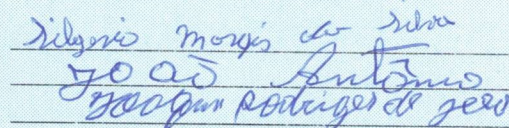 Silgerio Morais da Silva
João Antônio
Joaquim Rodrigues de